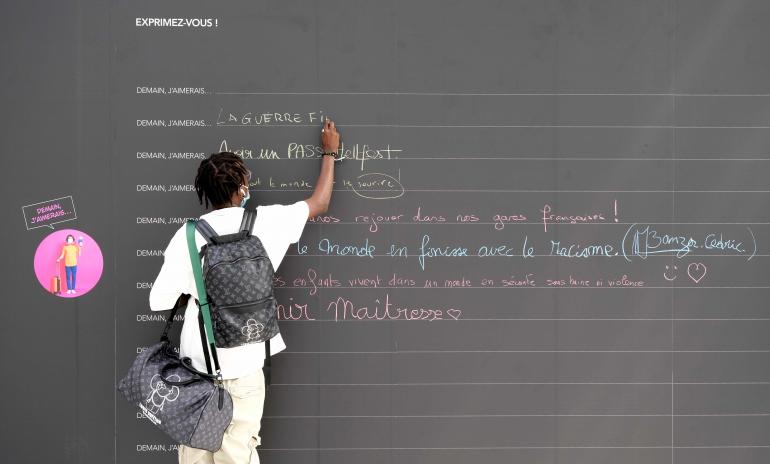 EXPRIMEZ-VOUS !
DEMAIN, J'AIMERAIS...
DEMAIN, J'AIMERAIS... LA GUERRE Fi
DEMAIN, J'AIMERAIS... Avoir un PASS Hellfest.
DEMAIN, J'AIMERAI tout le monde sourire
DEMAIN, J'AIME nos rejouer dans nos gares françaises !
DEMAIN, J'AI le monde en finisse avec le Racisme. (MBanzor. Cédric.)
DEMAIN, J'AIM enfants vivent dans un monde en sécurité sans haine ni violence
DEMAIN, J'AIM nir Maîtresse
DE
DEM
DE
DEMAIN, J'A
DEMAIN, J'AIM
DEMAIN,
J'AIMERAIS...